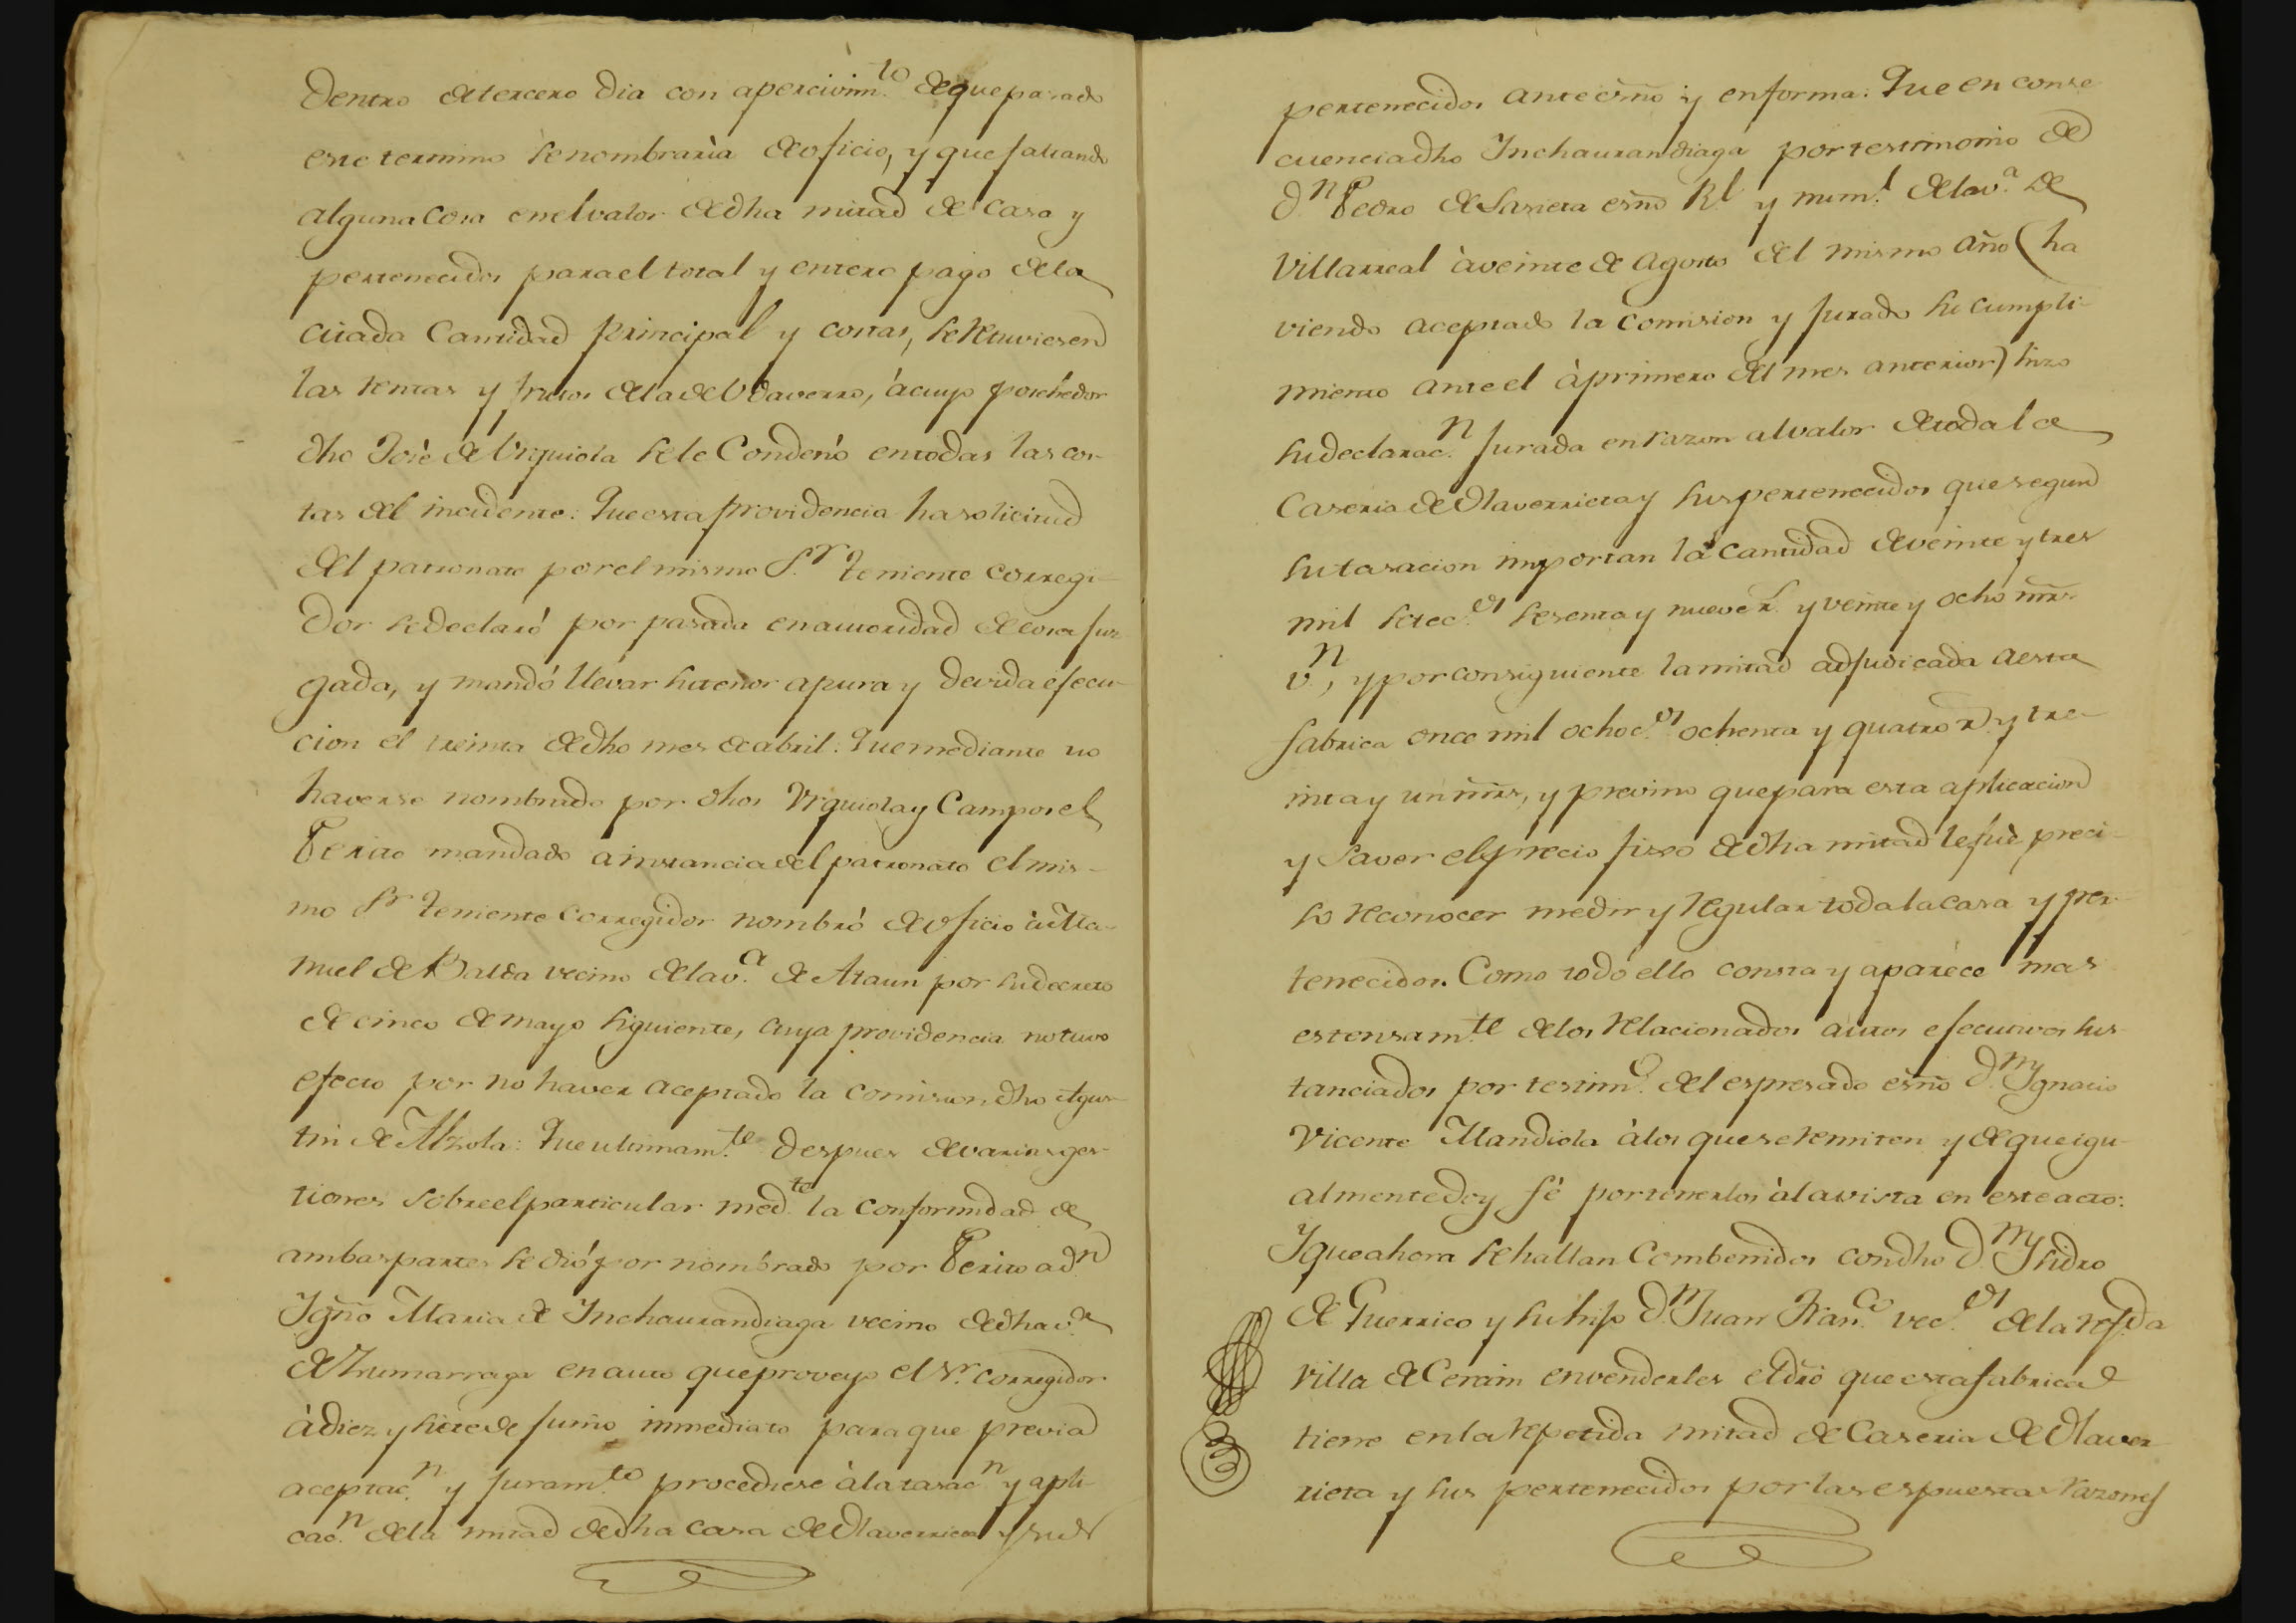 Dentro de tercero Dia con apercivim.to de que pasado
este termino se nombraría de oficio, y que faltando
alguna cosa en el valor de dha mitad de casa y
pertenecidos para el total y entero pago de la
citada Cantidad principal y costas, se retuviesen
las rentas y frutos de la de Udaverro, à cuyo posehedor
dho Josè de Urquiola se le Condenó en todas las cos-
tas del incidente: Que esta providencia ha solicitud
del patronato por el mismo S.r Teniente Corregi-
dor se declaró por pasada en autoridad de cosa juz
gada, y mandó llevar su tenor a pura y devida efecu-
cion el treinta de dho mes de abril: Que mediante no
haverse nombrado por dhos Urquiola y Campos el
Perito mandado a instancia del patronato el mis-
mo S.r Teniente Corregidor nombró de oficio à Ma-
nuel de Balda vecino de la v.a de Ataun por su decreto
de cinco de mayo siguiente, cuya providencia no tuvo
efecto por no haver aceptado la comision dho Agus-
tin de Alzola: Que ultimam.te despues de varias ges-
tiones sobre el particular med.te la conformidad de
ambas partes se dió por nombrado por Perito a d.n
Ygño Maria de Ynchaurandiaga vecino de dha v.a
de Zumarraga en auto que proveyo el S.r Corregidor
à diez y siete de Junio immediato para que previa
aceptac.n y juram.to procediese à la tasac.n y apli-
cac.n de la mitad de dha casa de Olaverrieta y sus
pertenecidos ante esño y en forma: Que en conse-
cuencia dho Ynchaurandiaga por testimonio de
d.n Pedro de Lasrieta esño R.l y num.l de la v.a de
Villarreal à veinte de Agosto del mismo año (ha
viendo aceptado la comision y jurado su cumpli-
miento ante el à primero del mes anterior) hizo
su declarac.n jurada en razon al valor de toda la
Caseria de Olaverrieta y sus pertenecidos que segun
su tasacion importan la cantidad de veinte y tres
mil setec.os sesenta y nueve r.s y veinte y ocho mrs
v.n, y por consiguiente la mitad adjudicada a esta
fabrica once mil ochoc.os ochenta y quatro r.s y tre-
inta y un mrs, y previno que para esta aplicacion
y saver el precio fixo de dha mitad le fuè preci-
so reconocer medir y regular toda la casa y per-
tenecidos. Como todo ello consta y aparece mas
estensam.te de los relacionados autos efecutivos sus-
tanciados por testim.o del espresado esño d.n Ygnacio
Vicente Mandiola à los que se remiten y de que igu-
almente doy fè por tenerlos à la vista en este acto:
Y que ahora se hallan Combenidos con dho d.n Ysidro
de Guerrico y su hijo d.n Juan Fran.co vec.os de la ref.da
villa de Cerain en venderles el dro que esta fabrica
tiene en la repetida mitad de Caseria de Olaver-
rieta y sus pertenecidos por las espuestas razones